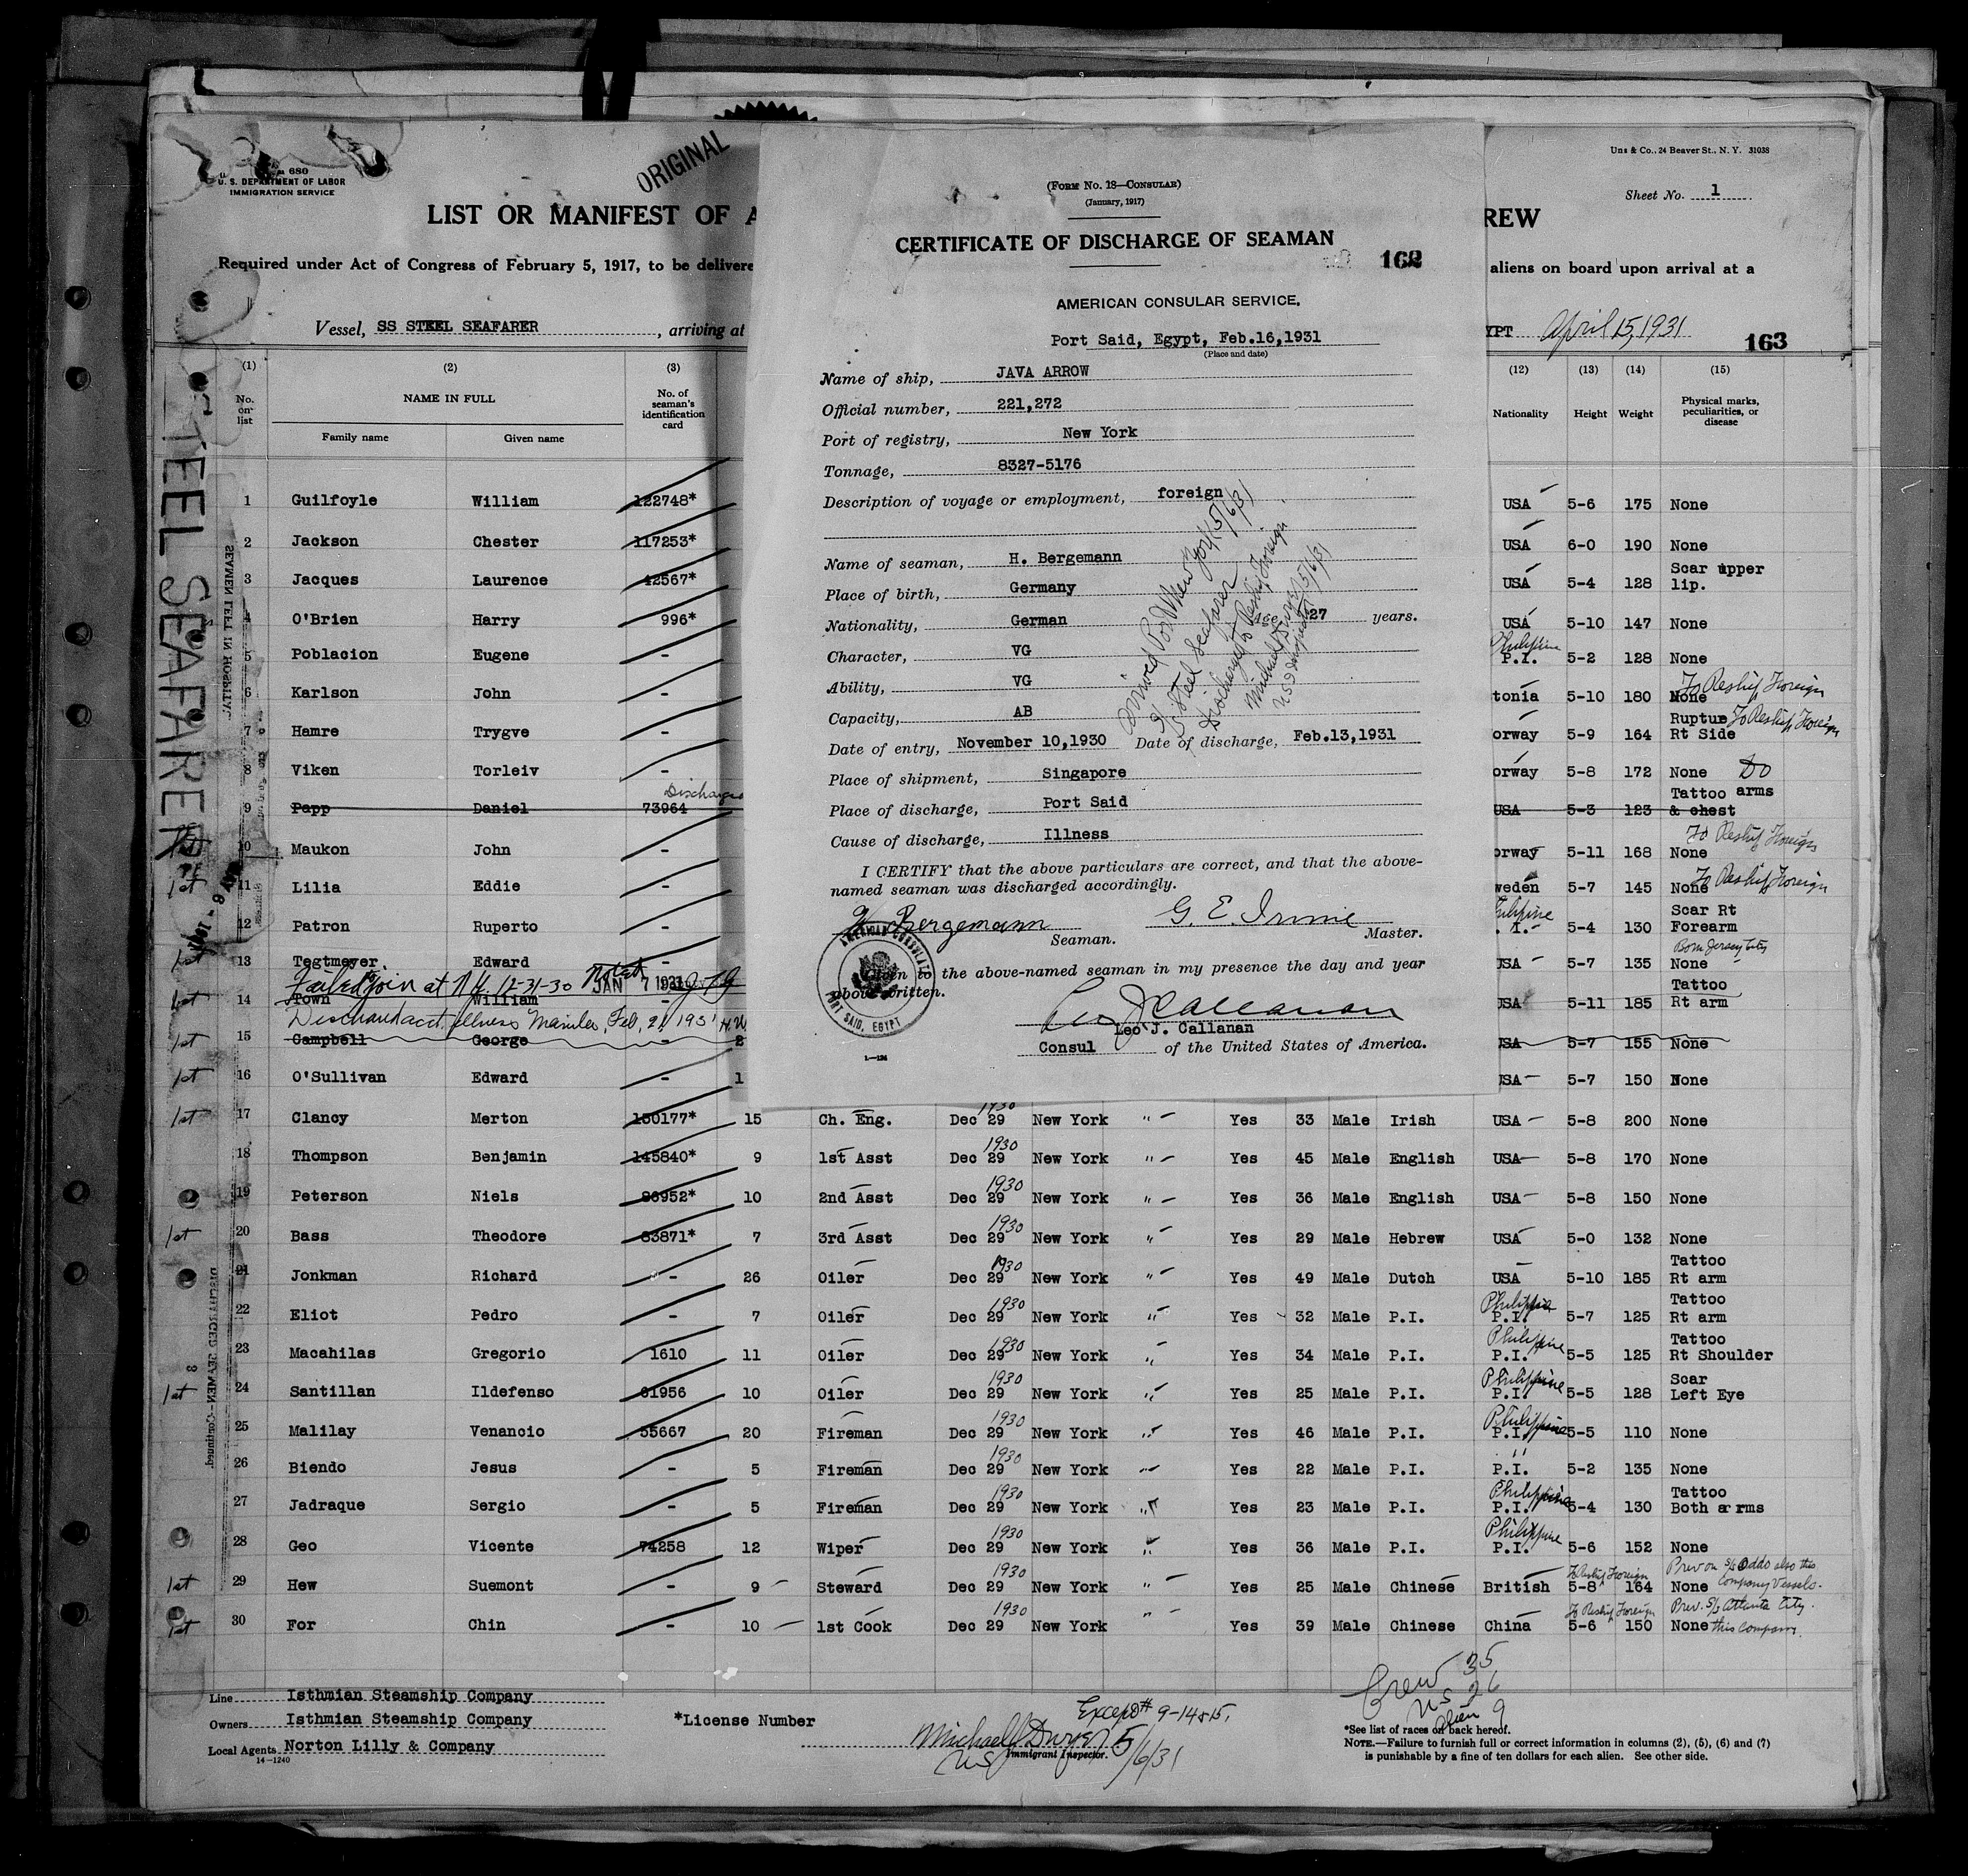 ORIGINAL
680
U. S. DEPARTMENT OF LABOR
IMMIGRATION SERVICE
Uns & Co., 24 Beaver St., N. Y. 31038
Sheet No. 1
LIST OR MANIFEST OF A
REW
Required under Act of Congress of February 5, 1917, to be delivere
aliens on board upon arrival at a
Vessel, SS STEEL SEAFARER, arriving at
YPT April 15, 1931
163
(1) (2) (3)
No. on list
NAME IN FULL
Family name Given name
No. of seaman's identification card
(12) (13) (14) (15)
Nationality Height Weight Physical marks, peculiarities, or disease
1 Guilfoyle William 122748* USA 5-6 175 None
2 Jackson Chester 117253* USA 6-0 190 None
3 Jacques Laurence 42567* USA 5-4 128 Scar upper lip.
4 O'Brien Harry 996* USA 5-10 147 None
5 Poblacion Eugene - Philippine P.I. 5-2 128 None
6 Karlson John - tonia 5-10 180 None To Reship Foreign
7 Hamre Trygve - orway 5-9 164 Rupture Rt Side To Reship Foreign
8 Viken Torleiv - orway 5-8 172 None Do
Discharged
9 Papp Daniel 73964 USA 5-3 123 Tattoo arms & chest
10 Maukon John - orway 5-11 168 None To Reship Foreign
1st 11 Lilia Eddie - weden 5-7 145 None To Reship Foreign
12 Patron Ruperto - . I. 5-4 130 Scar Rt Forearm
1st 13 Tegtmeyer Edward - USA 5-7 135 None Born Jersey City
Failed join at N.Y. 12-31-30 Noted JAN 7 1931
1st 14 Town William USA 5-11 185 Tattoo Rt arm
Discharged acct. illness Manila, Feb. 21 1931
1st 15 Campbell George - 2 USA 5-7 155 None
1st 16 O'Sullivan Edward - 1 USA 5-7 150 None
1st 17 Clancy Merton 150177* 15 Ch. Eng. Dec 29 1930 New York " Yes 33 Male Irish USA 5-8 200 None
18 Thompson Benjamin 145840* 9 1st Asst Dec 29 1930 New York " Yes 45 Male English USA 5-8 170 None
19 Peterson Niels 96952* 10 2nd Asst Dec 29 1930 New York " Yes 36 Male English USA 5-8 150 None
1st 20 Bass Theodore 83871* 7 3rd Asst Dec 29 1930 New York " Yes 29 Male Hebrew USA 5-0 132 None
21 Jonkman Richard - 26 Oiler Dec 29 1930 New York " Yes 49 Male Dutch USA 5-10 185 Tattoo Rt arm
22 Eliot Pedro - 7 Oiler Dec 29 1930 New York " Yes 32 Male P.I. Philippine P.I. 5-7 125 Tattoo Rt arm
23 Macahilas Gregorio 1610 11 Oiler Dec 29 1930 New York " Yes 34 Male P.I. Philippine P.I. 5-5 125 Tattoo Rt Shoulder
1st 24 Santillan Ildefenso 61956 10 Oiler Dec 29 1930 New York " Yes 25 Male P.I. Philippine P.I. 5-5 128 Scar Left Eye
25 Malilay Venancio 55667 20 Fireman Dec 29 1930 New York " Yes 46 Male P.I. Philippine P.I. 5-5 110 None
26 Biendo Jesus - 5 Fireman Dec 29 1930 New York " Yes 22 Male P.I. " P.I. 5-2 135 None
27 Jadraque Sergio - 5 Fireman Dec 29 1930 New York " Yes 23 Male P.I. Philippine P.I. 5-4 130 Tattoo Both arms
28 Geo Vicente 74258 12 Wiper Dec 29 1930 New York " Yes 36 Male P.I. Philippine P.I. 5-6 152 None
1st 29 Hew Suemont - 9 Steward Dec 29 1930 New York " Yes 25 Male Chinese British To Reship Foreign 5-8 164 None Prev on S/S Oddo also this Company Vessels.
1st 30 For Chin - 10 1st Cook Dec 29 1930 New York " Yes 39 Male Chinese China To Reship Foreign 5-6 150 None Prev. S/S Atlanta City. this Company.
Line Isthmian Steamship Company
Owners Isthmian Steamship Company
Local Agents Norton Lilly & Company
14-1240
*License Number
Except # 9-14&15.
Michael Dwyer
US Immigrant Inspector. 5/6/31
Crew 35
US 26
Alien 9
*See list of races on back hereof.
NOTE.—Failure to furnish full or correct information in columns (2), (5), (6) and (7)
is punishable by a fine of ten dollars for each alien. See other side.
STEEL SEAFARER
SEAMEN LEFT IN HOSPITAL
DISCHARGED SEAMEN—Continued.
(FORM No. 18—CONSULAR)
(January, 1917)
CERTIFICATE OF DISCHARGE OF SEAMAN
162
AMERICAN CONSULAR SERVICE,
Port Said, Egypt, Feb.16,1931
(Place and date)
Name of ship, JAVA ARROW
Official number, 221,272
Port of registry, New York
Tonnage, 8327-5176
Description of voyage or employment, foreign
Name of seaman, H. Bergemann
Place of birth, Germany
Nationality, German Age 27 years.
Character, VG
Ability, VG
Capacity, AB
Date of entry, November 10,1930 Date of discharge, Feb.13,1931
Place of shipment, Singapore
Place of discharge, Port Said
Cause of discharge, Illness
Arrived Port New York 5/6/31
S/S Steel Seafarer
Discharged to Reship Foreign
Michael Dwyer 5/6/31
US Inspector
I CERTIFY that the above particulars are correct, and that the above-
named seaman was discharged accordingly.
H Bergemann
Seaman.
G. E. Irvine
Master.
Given the above-named seaman in my presence the day and year
above written.
AMERICAN CONSULATE
PORT SAID, EGYPT
Leo J Callanan
Leo J. Callanan
Consul of the United States of America.
1—124